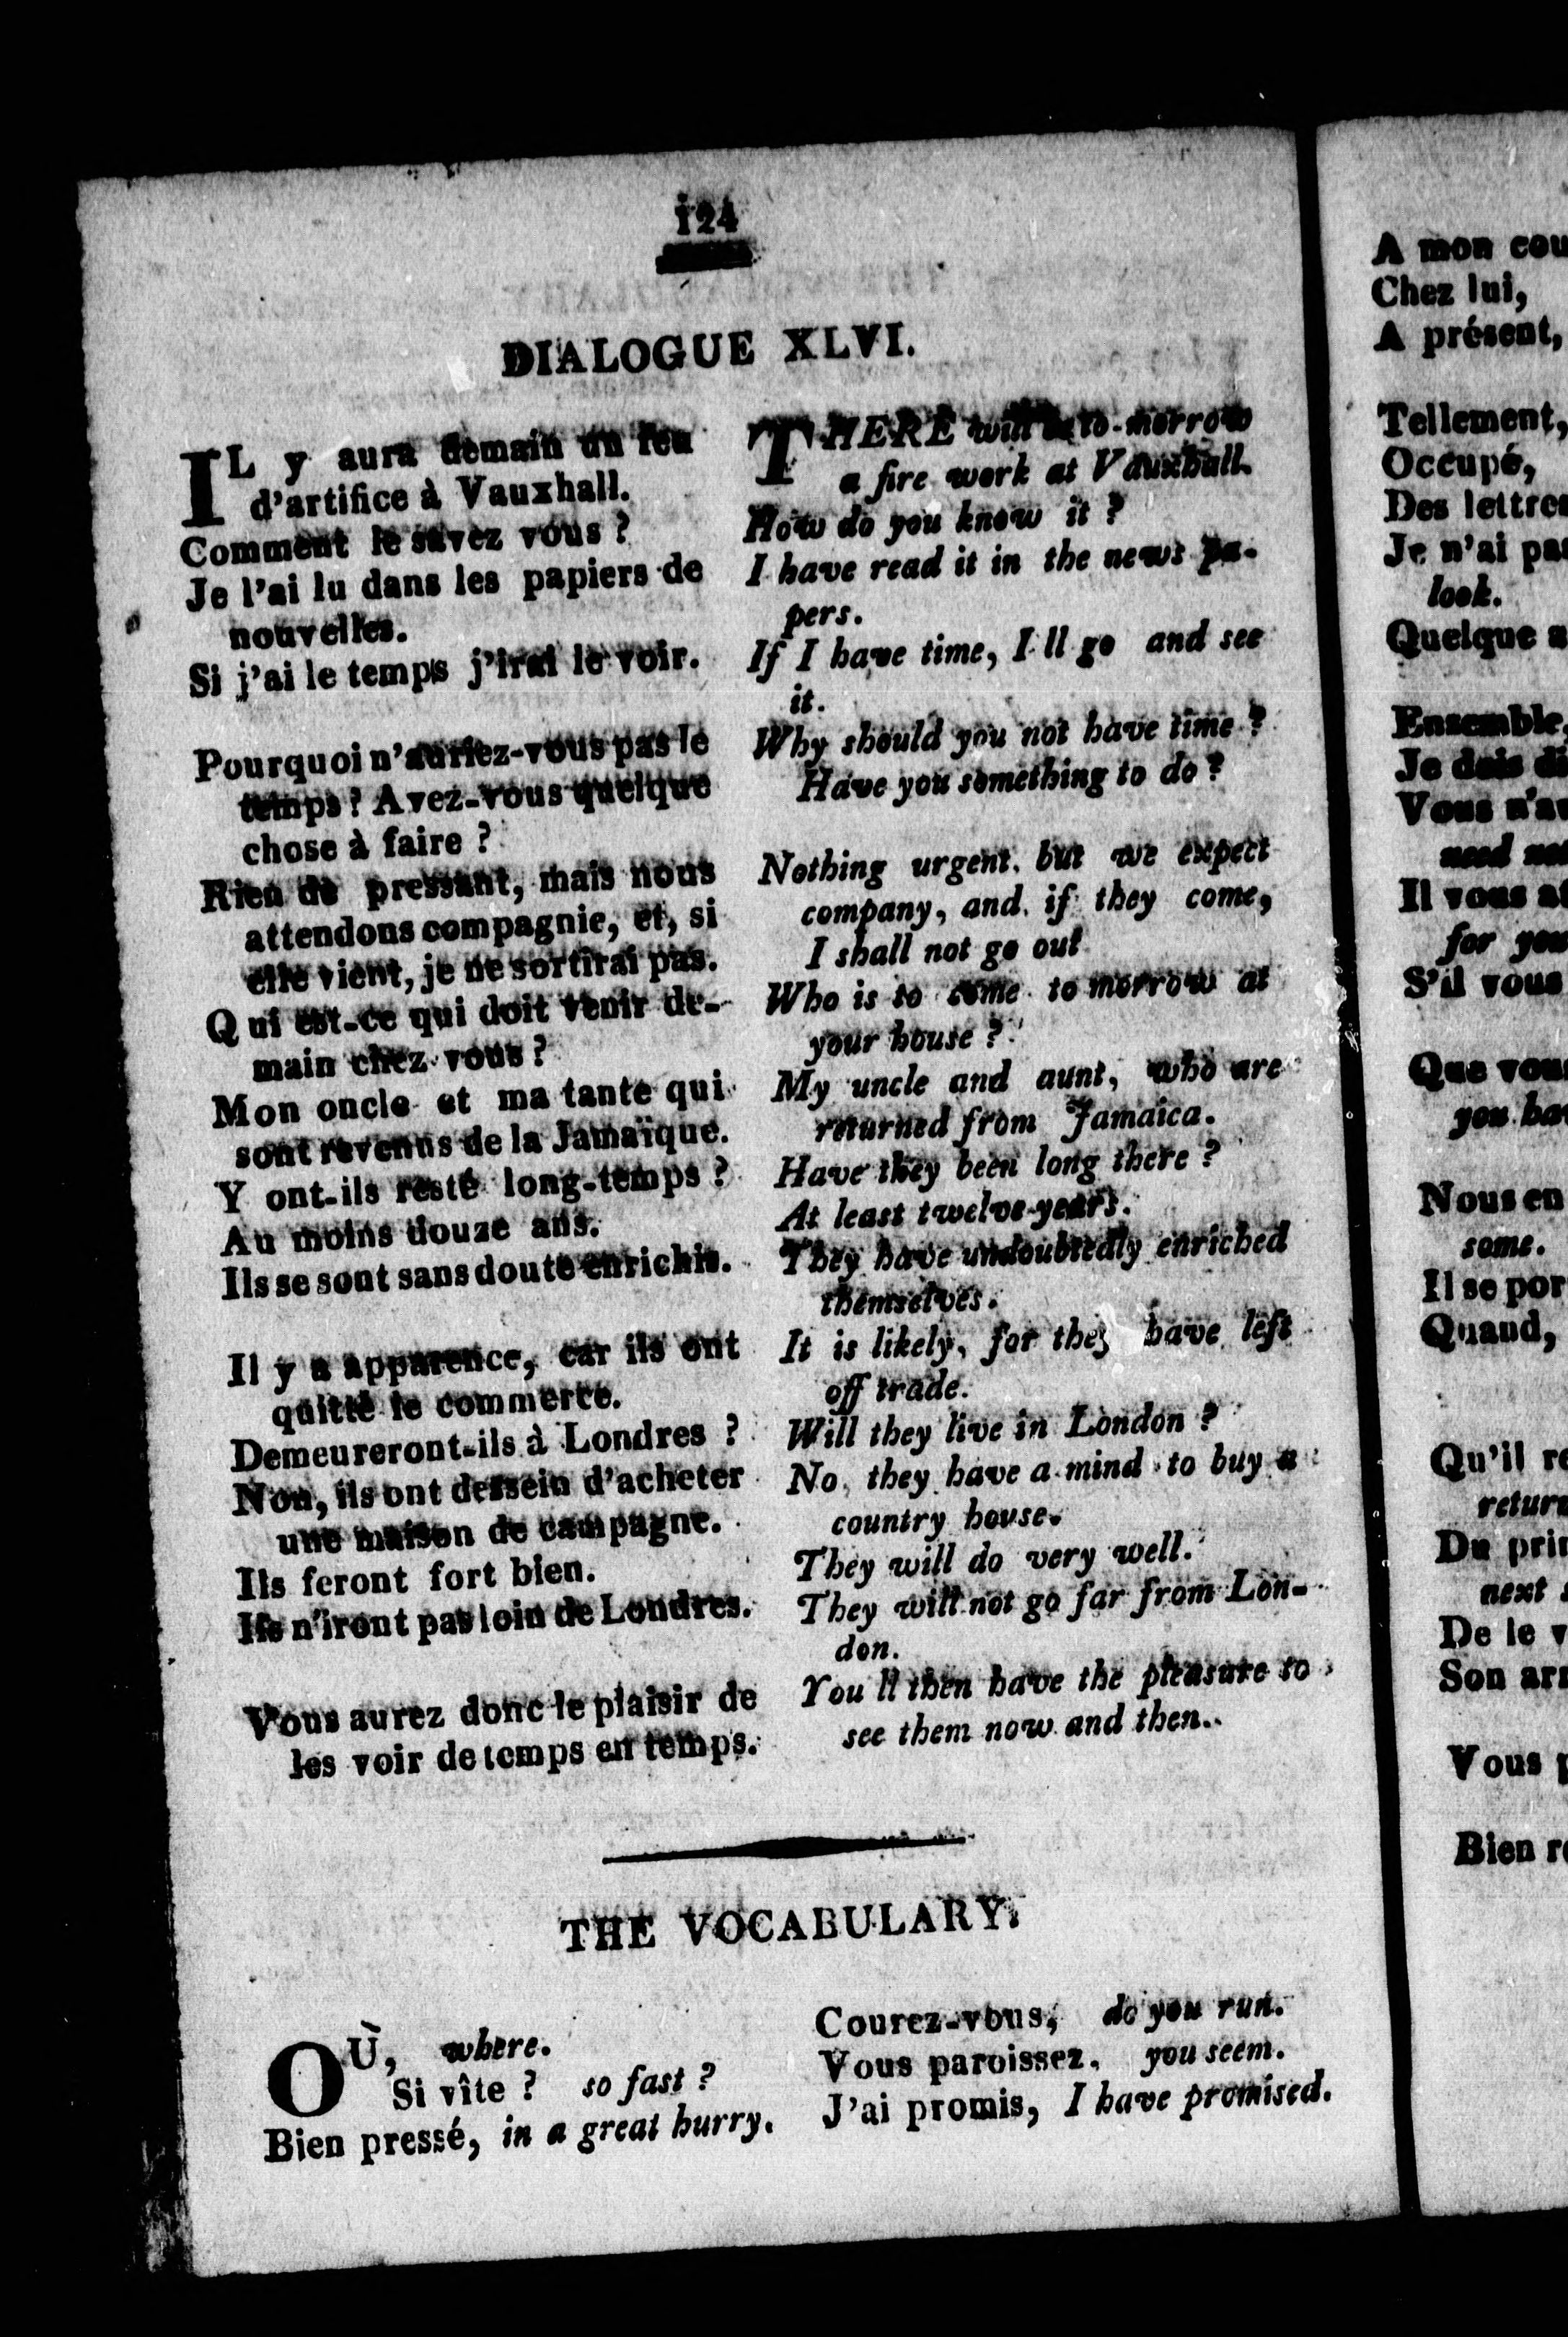 124
DIALOGUE XLVI.
IL y aura demain un feu
d'artifice à Vauxhall.
Comment le savez vous ?
Je l'ai lu dans les papiers de
nouvelles.
Si j'ai le temps j'irai le voir.
Pourquoi n'auriez-vous pas le
temps ? Avez-vous quelque
chose à faire ?
Rien de pressant, mais nous
attendons compagnie, et, si
elle vient, je ne sortirai pas.
Qui est-ce qui doit venir de-
main chez vous ?
Mon oncle et ma tante qui
sont revenus de la Jamaïque.
Y ont-ils resté long-temps ?
Au moins douze ans.
Ils se sont sans doute enrichis.
Il y a apparence, car ils ont
quitté le commerce.
Demeureront-ils à Londres ?
Non, ils ont dessein d'acheter
une maison de campagne.
Ils feront fort bien.
Ils n'iront pas loin de Londres.
Vous aurez donc le plaisir de
les voir de temps en temps.
THERE will be to-morrow
a fire work at Vauxhall.
How do you know it ?
I have read it in the news pa-
pers.
If I have time, I ll go and see
it.
Why should you not have time ?
Have you something to do ?
Nothing urgent, but we expect
company, and if they come,
I shall not go out
Who is to come to morrow at
your house ?
My uncle and aunt, who are
returned from Jamaica.
Have they been long there ?
At least twelve years.
They have undoubtedly enriched
themselves.
It is likely, for they have left
off trade.
Will they live in London ?
No, they have a mind to buy a
country house.
They will do very well.
They will not go far from Lon-
don.
You ll then have the pleasure to
see them now and then.
THE VOCABULARY.
OÙ, where.
Si vîte ? so fast ?
Bien pressé, in a great hurry.
Courez-vous, do you run.
Vous paroissez, you seem.
J'ai promis, I have promised.
A mon cou
Chez lui,
A présent,
Tellement,
Occupé,
Des lettres
Je n'ai pas
look.
Quelque a
Ensemble,
Je dois di
Vous n'av
need not
Il vous at
for you
S'il vous
Que vous
you ha
Nous en
some.
Il se por
Quand,
Qu'il re
return
Du prin
next
De le v
Son arr
Vous p
Bien re